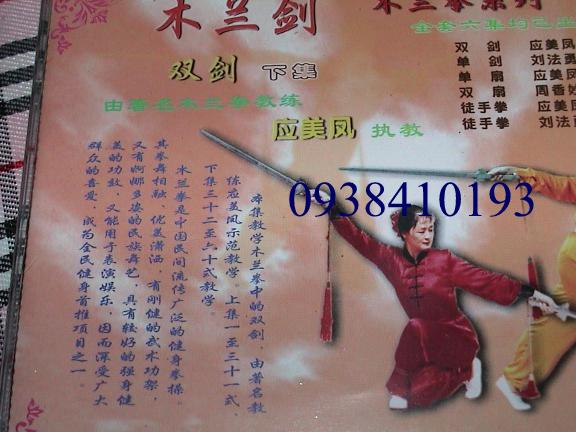 木兰剑
木兰拳系列
全套六集均已出
双剑 下集
双 剑 应美凤
单 剑 刘法勇
单 扇 应美凤
双 扇 周香妙
徒手拳 应美凤
徒手拳 刘法
由著名木兰拳教练
应美凤 执教
0938410193
本集教学木兰拳中的双剑，由著名教
练应美凤示范教学，上集一至三十一式，
下集三十二至六十式教学。
木兰拳是中国民间流传广泛的健身拳操。
其拳舞相融，优美潇洒，有刚健的武术功架，
又有婀娜多姿的民族舞艺，具有较好的强身健
美的功效，又能用于表演娱乐，因而深受广大
群众的喜爱，成为全民健身首推项目之一。